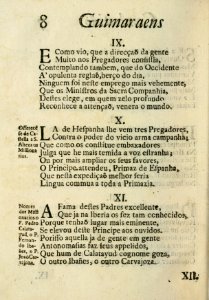 8 Guimaraens
IX.
E Como vio, que a direcçaõ da gente
Muito nos Pregadores consistia,
Contemplando tambem, que do Occidente
A' opulenta regiaõ, berço do dia,
Ninguem foi neste emprego mais vehemente,
Que os Ministros da Sacra Companhia,
Destes elege, em quem zelo profundo
Reconhece a attençaõ, venera o mundo.
X.
LA de Hespanha lhe vem tres Prégadores,
Contra o poder do vicio arma campanha,
Que como os constitue embaixadores
Julga que he mais temida a voz estranha;
Ou por mais ampliar os seus favores,
O Principe attendeu, Primaz de Espanha,
Que nesta expediçaõ melhor seria
Lingua commua a toda a Primazia.
XI.
A Fama destes Padres excellente,
Que ja na Iberia os fez tam conhecidos,
Porque tenhaõ lugar mais eminente,
Se elevou deste Principe aos ouvidos.
Porisso aquella já de gente em gente
Antonomasias faz seus appelidos,
Que hum de Calatayud cognome goza,
O outro Ibañes, o outro Carvajoza.
XII.